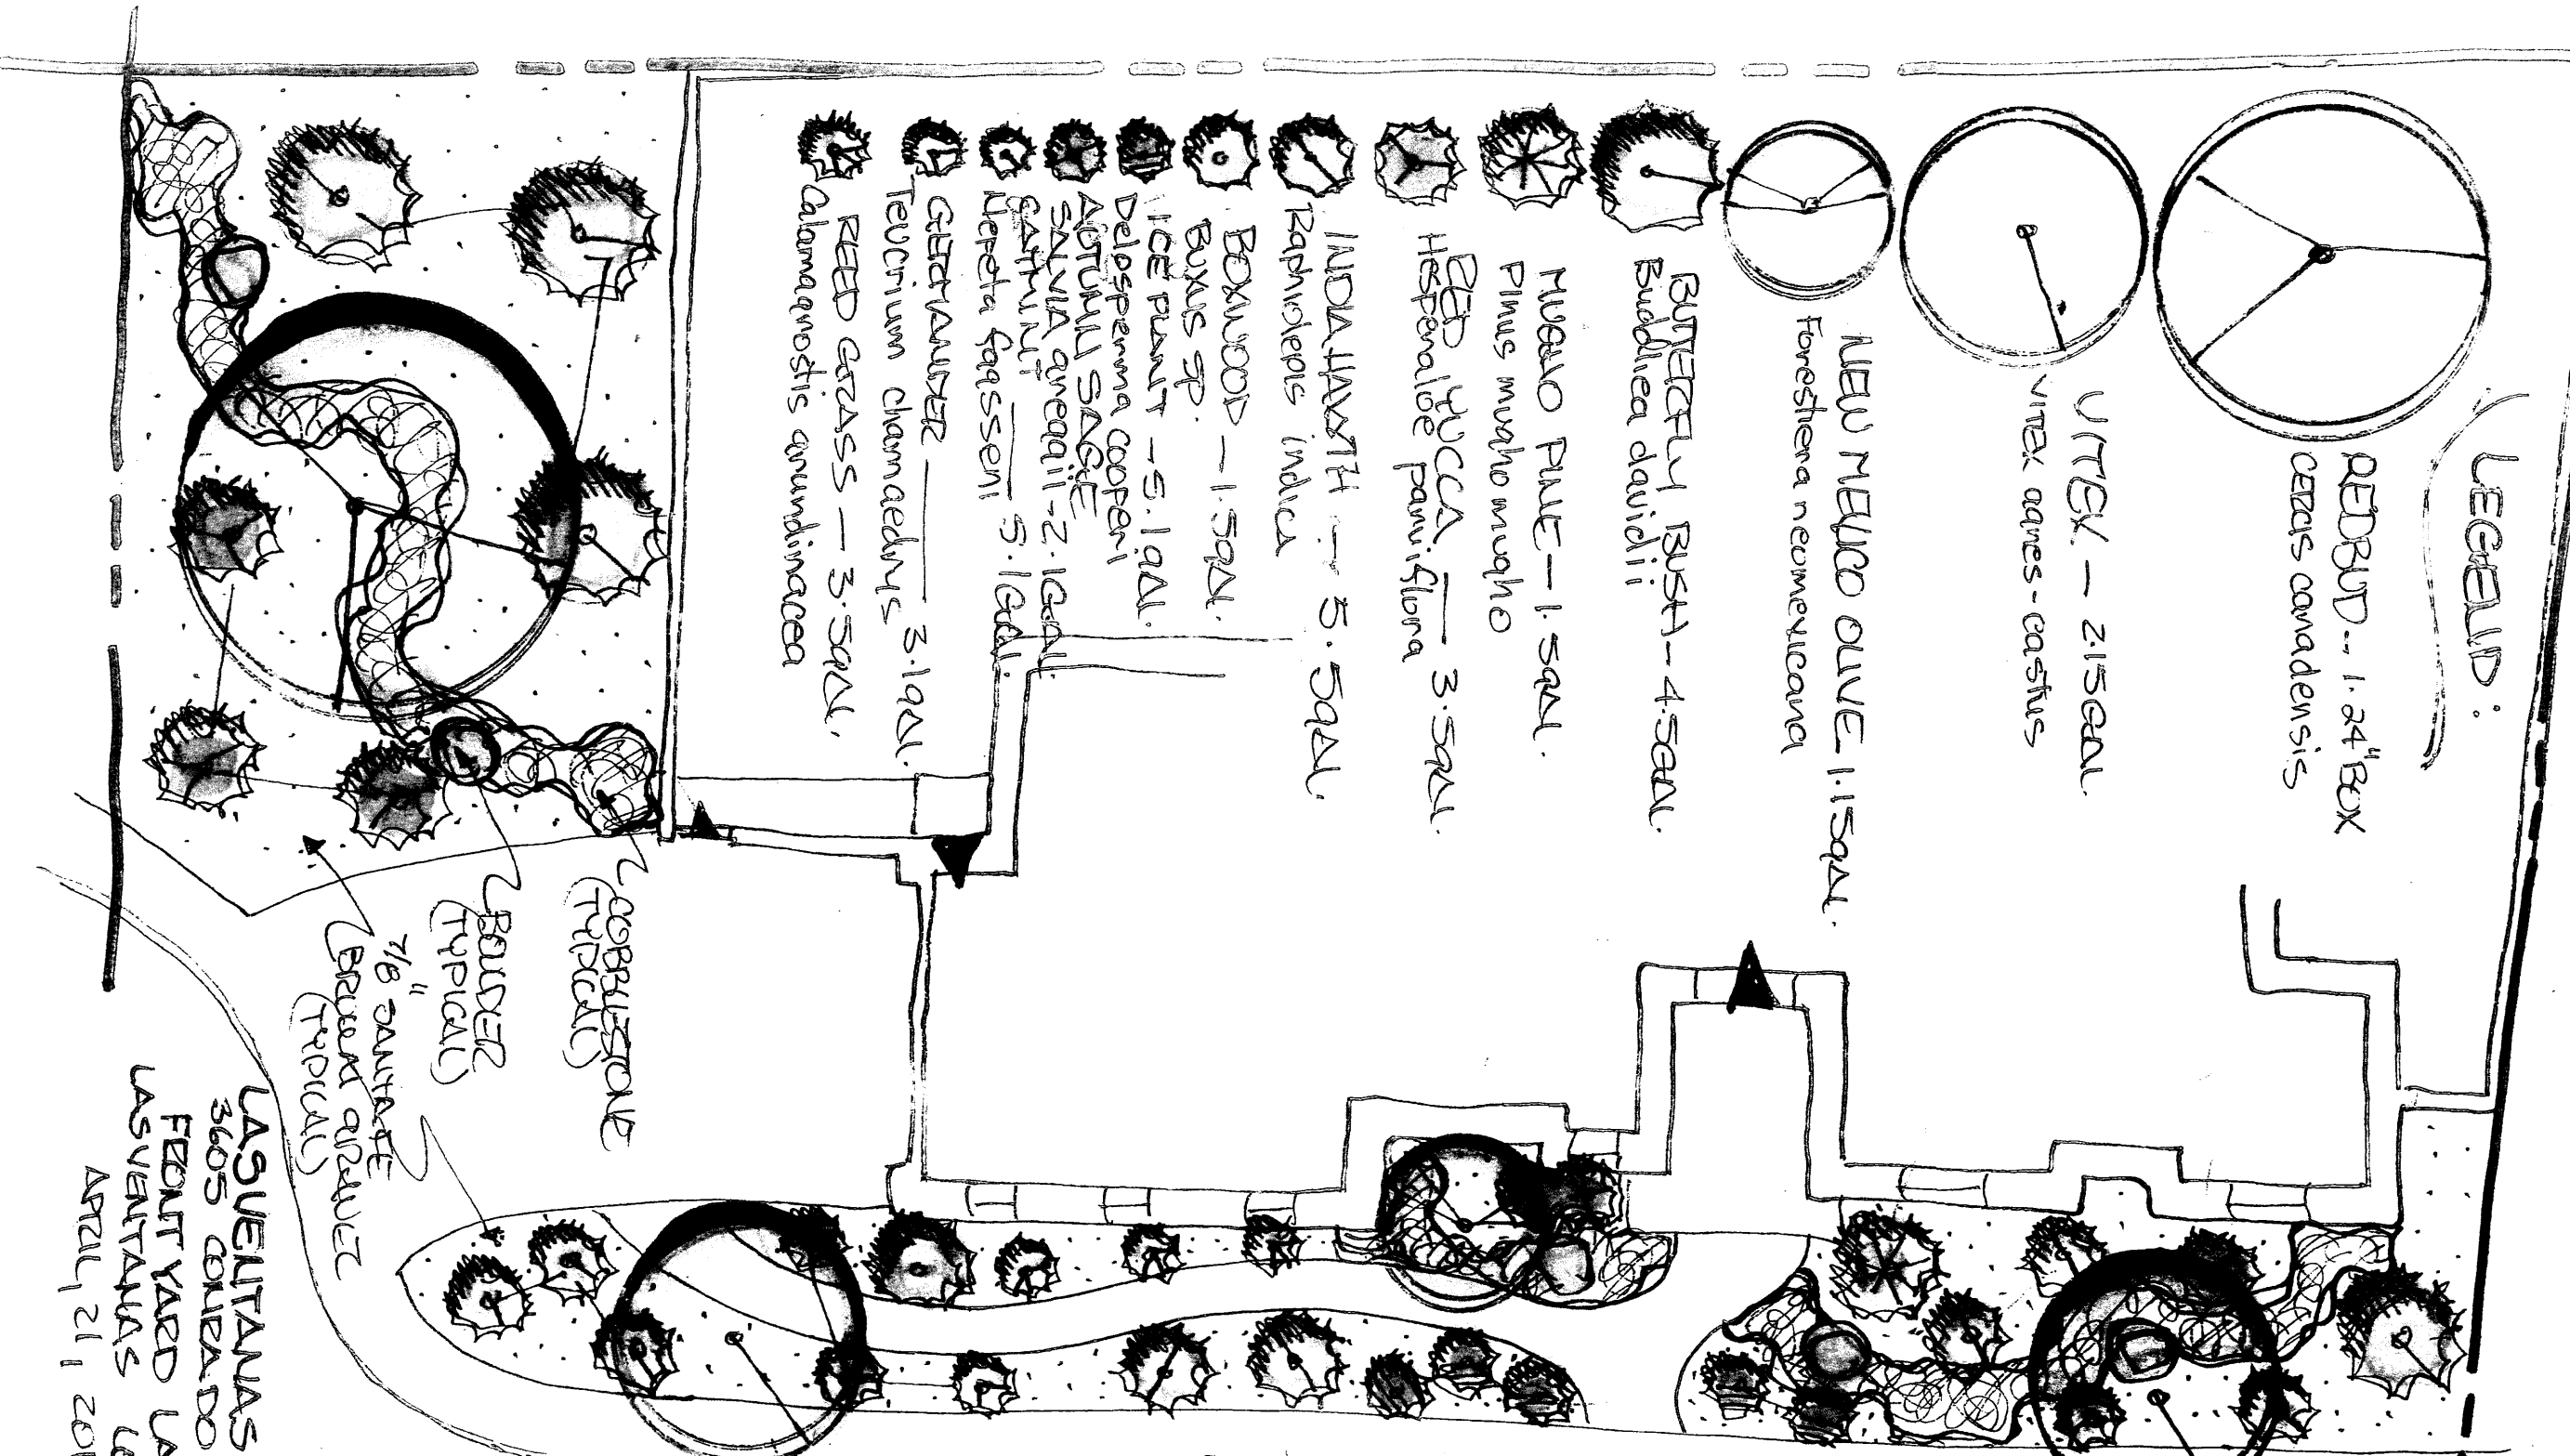 LEGEND:
REDBUD -- 1.24" BOX
CERCIS canadensis
VITEX — 2.15GAL.
VITEX agnes-castus
NEW MEXICO OLIVE 1.15gAL.
Forestiera neomexicana
BUTTERFLY BUSH -- 4.5GAL.
Buddlea davidii
MUGHO PINE — 1.5gAL.
Pinus mugho mugho
RED YUCCA — 3.5gAL.
Hesperaloe parviflora
INDIA HAWTH -- 5.5gAL.
Raphiolepis indica
BOXWOOD — 1.5gAL.
BUXUS SP.
ICE PLANT - 5.1gAL.
Delosperma cooperi
AUTUMN SAGE
SALVIA greggii - 2.1GAL.
CATMINT
Nepeta faasseni — 5.1GAL.
GERMANDER — 3.1gAL.
Teucrium chamaedrys
REED GRASS — 3.5gAL.
Calamagrostis arundinacea
COBBLESTONE
(TYPICAL)
BOULDER
(TYPICAL)
7/8" SANTA FE
BROWN GRAVEL
(TYPICAL)
LAS VENTANAS
3605 CONRADO
FRONT YARD LA
LAS VENTANAS
APRIL, 21, 201